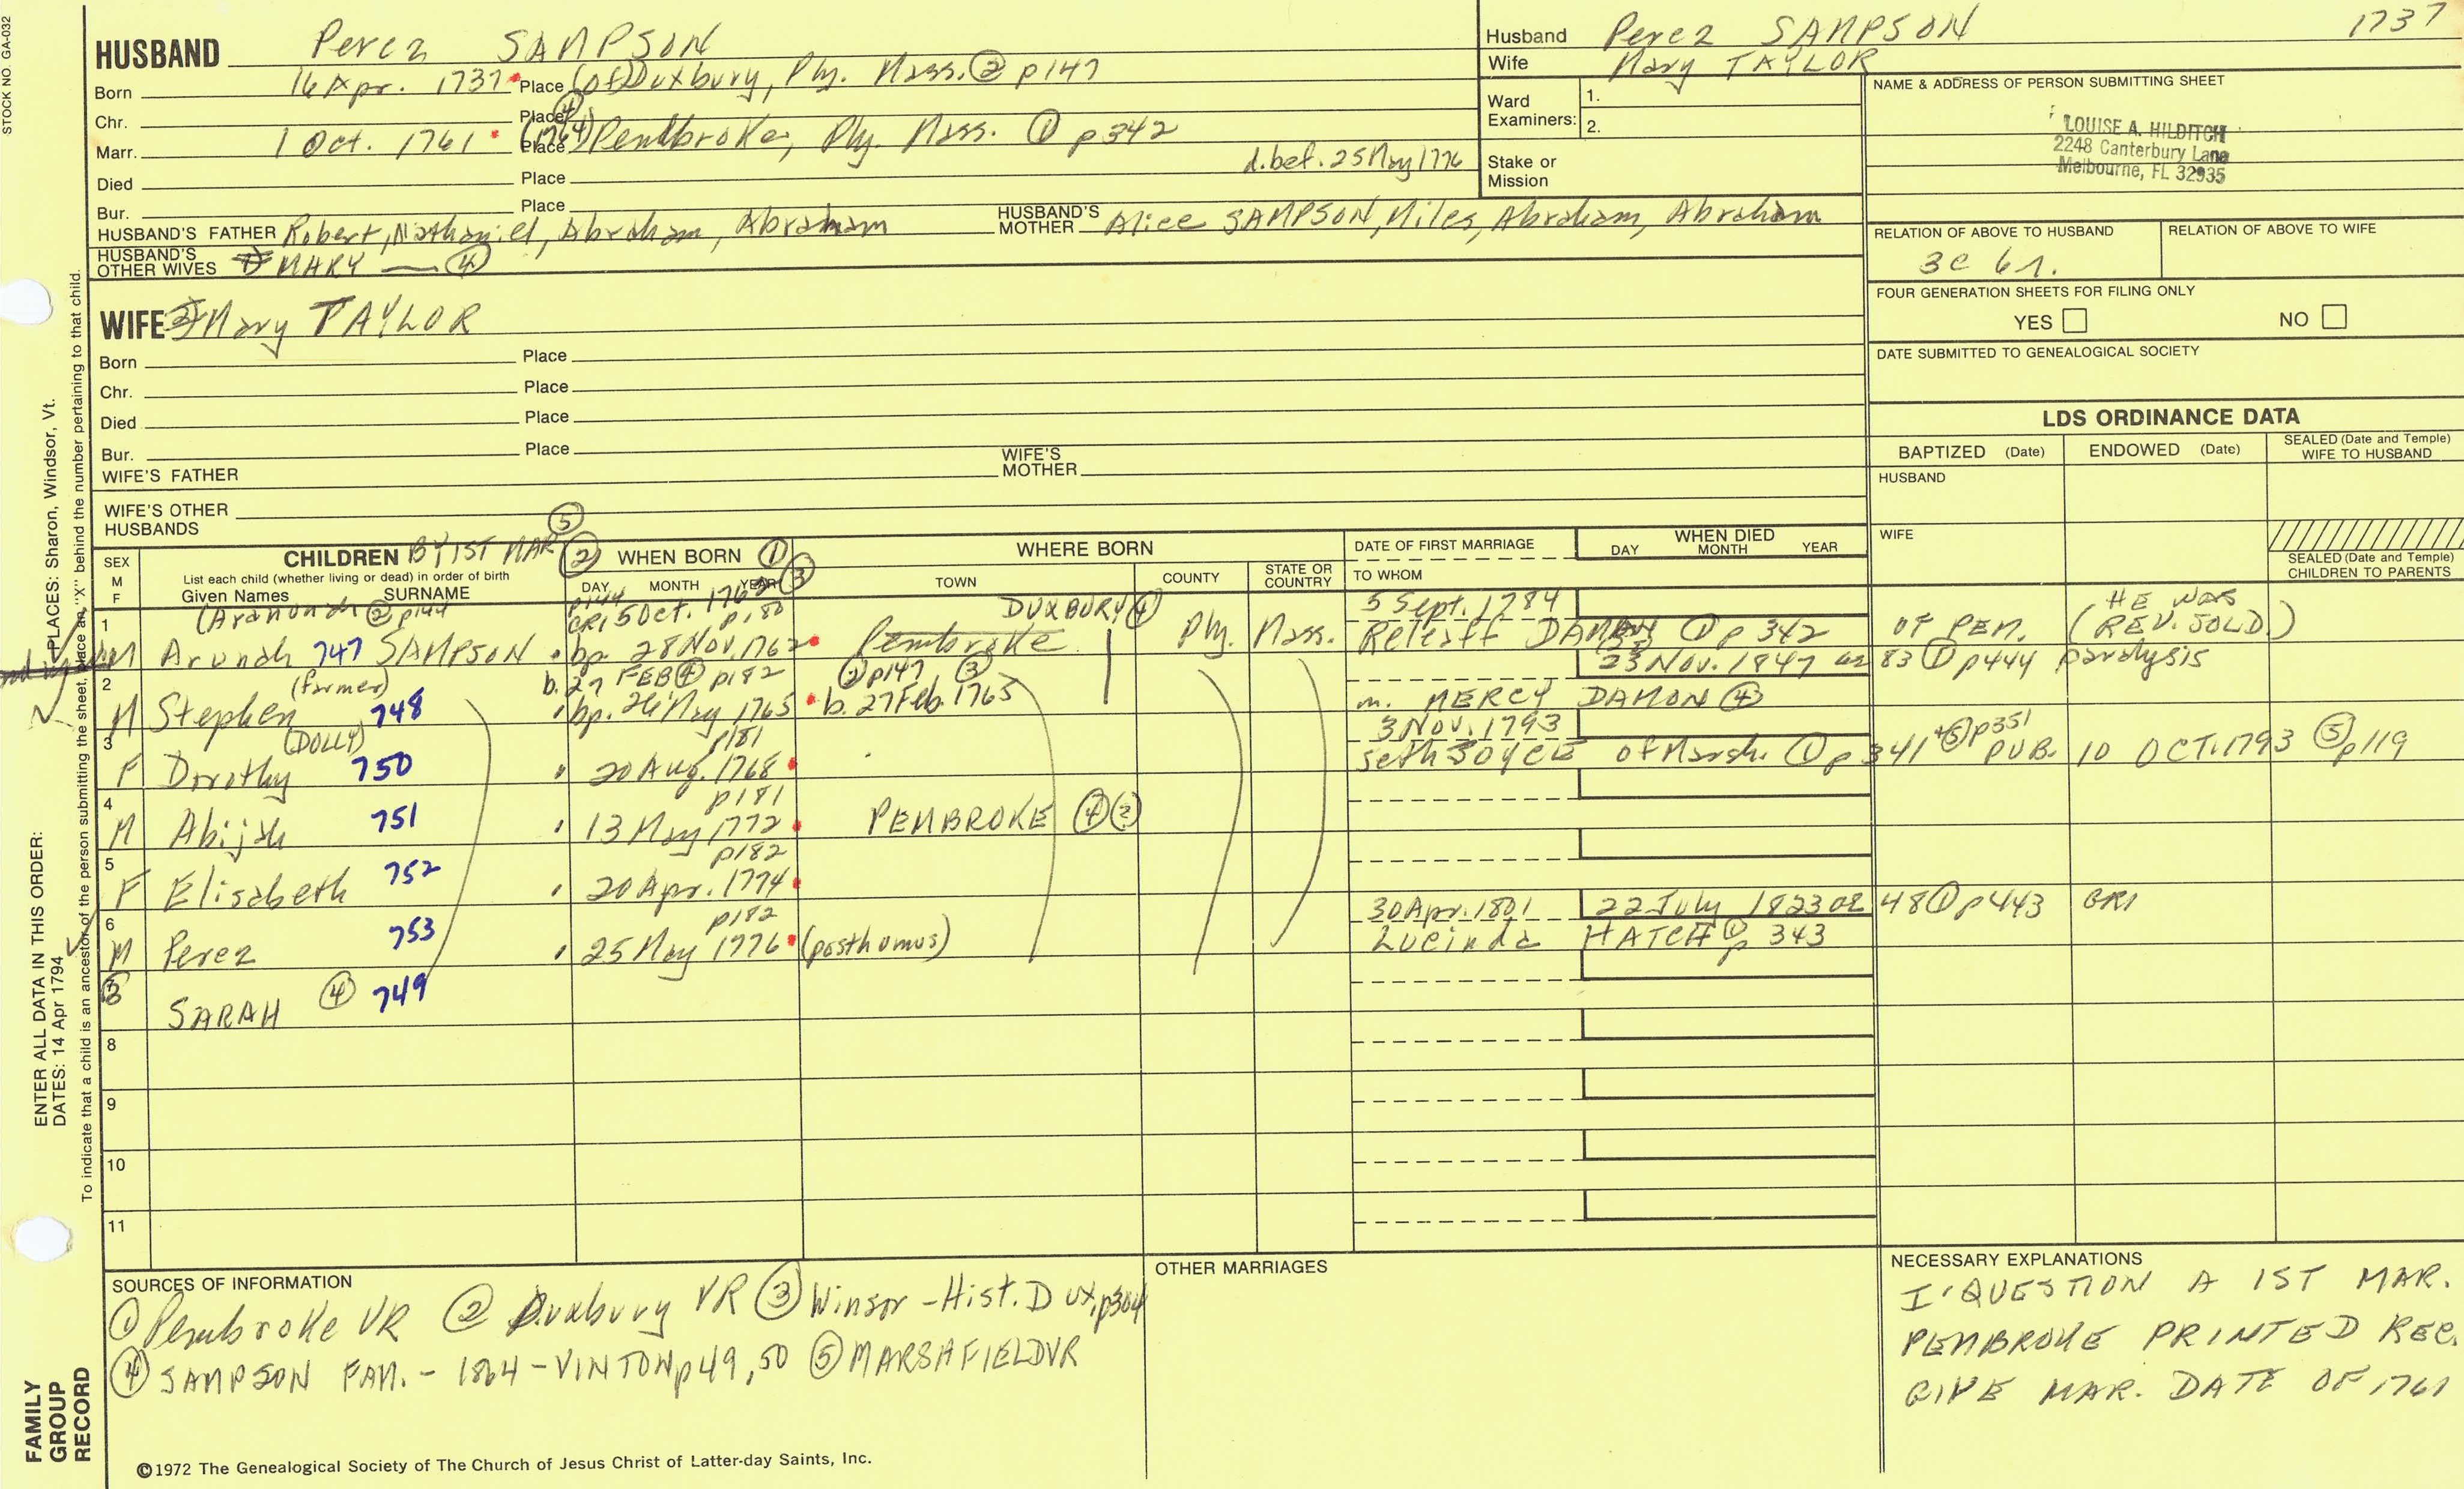 STOCK NO. GA-032
HUSBAND Perez SAMPSON
Born 16 Apr. 1737 Place (of) Duxbury, Ply. Mass. ② p147
Chr. Place ④
Marr. 1 Oct. 1761 (1764) Place Pembroke, Ply. Mass. ① p342
d. bef. 25 May 1776
Died Place
Bur. Place
HUSBAND'S FATHER Robert, Nathaniel, Abraham, Abraham HUSBAND'S MOTHER Alice SAMPSON, Miles, Abraham, Abraham
HUSBAND'S OTHER WIVES MARY — ④
WIFE Mary TAYLOR
Born Place
Chr. Place
Died Place
Bur. Place
WIFE'S FATHER WIFE'S MOTHER
WIFE'S OTHER HUSBANDS
Husband Perez SAMPSON 1737
Wife Mary TAYLOR
Ward Examiners: 1.
2.
Stake or Mission
NAME & ADDRESS OF PERSON SUBMITTING SHEET
LOUISE A. HILDITCH
2248 Canterbury Lane
Melbourne, FL 32935
RELATION OF ABOVE TO HUSBAND RELATION OF ABOVE TO WIFE
3c 6r.
FOUR GENERATION SHEETS FOR FILING ONLY
YES NO
DATE SUBMITTED TO GENEALOGICAL SOCIETY
LDS ORDINANCE DATA
BAPTIZED (Date) ENDOWED (Date) SEALED (Date and Temple) WIFE TO HUSBAND
HUSBAND
WIFE
SEALED (Date and Temple) CHILDREN TO PARENTS
SEX M F
CHILDREN BY 1ST MAR ⑤
List each child (whether living or dead) in order of birth
Given Names SURNAME
② WHEN BORN ① ③
DAY MONTH YEAR
WHERE BORN
TOWN COUNTY STATE OR COUNTRY
DATE OF FIRST MARRIAGE
TO WHOM
WHEN DIED
DAY MONTH YEAR
1 (Aranondh ② p144 p144 CR1 5 Oct. 1762 p.180 DUXBURY ④ 5 Sept. 1784 HE WAS
M Arunah 747 SAMPSON bp. 28 Nov. 1762 Pembroke Ply. Mass. Releaff DAMON ① p342 OF PEM. (REV. SOLD.)
2 (farmer) b. 27 FEB ④ p182 ② p147 ③ 23 Nov. 1847 ae 83 ① p444 paralysis
M Stephen 748 bp. 26 May 1765 b. 27 Feb. 1765 m. MERCY DAMON ④
3 (DOLLY) p181 3 Nov. 1793
F Dorothy 750 20 Aug. 1768 Seth JOYCE of Marsh. ① p341 + ⑤ p351 PUB. 10 OCT. 1793 ⑤ p119
4 p181
M Abijah 751 13 May 1772 PEMBROKE ④ ②
5 p182
F Elisabeth 752 20 Apr. 1774
6 p182 30 Apr. 1801 22 July 1823 ae 48 ① p443 GR1
M Perez 753 25 May 1776 (posthumus) Lucinda HATCH ① p 343
SARAH ④ 749
8
9
10
11
SOURCES OF INFORMATION
① Pembroke VR ② Duxbury VR ③ Winsor - Hist. Dux. p304
④ SAMPSON FAM. - 1864 - VINTON p49, 50 ⑤ MARSHFIELD VR
OTHER MARRIAGES
NECESSARY EXPLANATIONS
I QUESTION A 1ST MAR.
PEMBROKE PRINTED REC.
GIVE MAR. DATE OF 1761
©1972 The Genealogical Society of The Church of Jesus Christ of Latter-day Saints, Inc.
ENTER ALL DATA IN THIS ORDER:
DATES: 14 Apr 1794
PLACES: Sharon, Windsor, Vt.
To indicate that a child is an ancestor of the person submitting the sheet, place an "X" behind the number pertaining to that child.
FAMILY
GROUP
RECORD